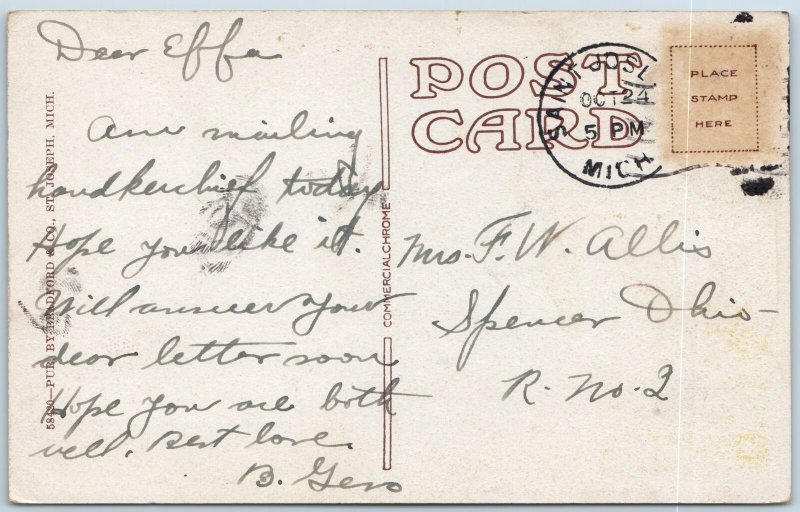 Dear Effa
Am mailing
handkerchief today
Hope you like it.
Will answer your
dear letter soon
Hope you are both
well. Best love.
B.
58420—PUB. BY BRADFORD & CO., ST. JOSEPH, MICH.
COMMERCIALCHROME
POST
CARD
SAINT JOS
OCT 24
5 PM
MICH
PLACE
STAMP
HERE
Mrs. F. W. Allis
Spencer Ohio
R. No. 2